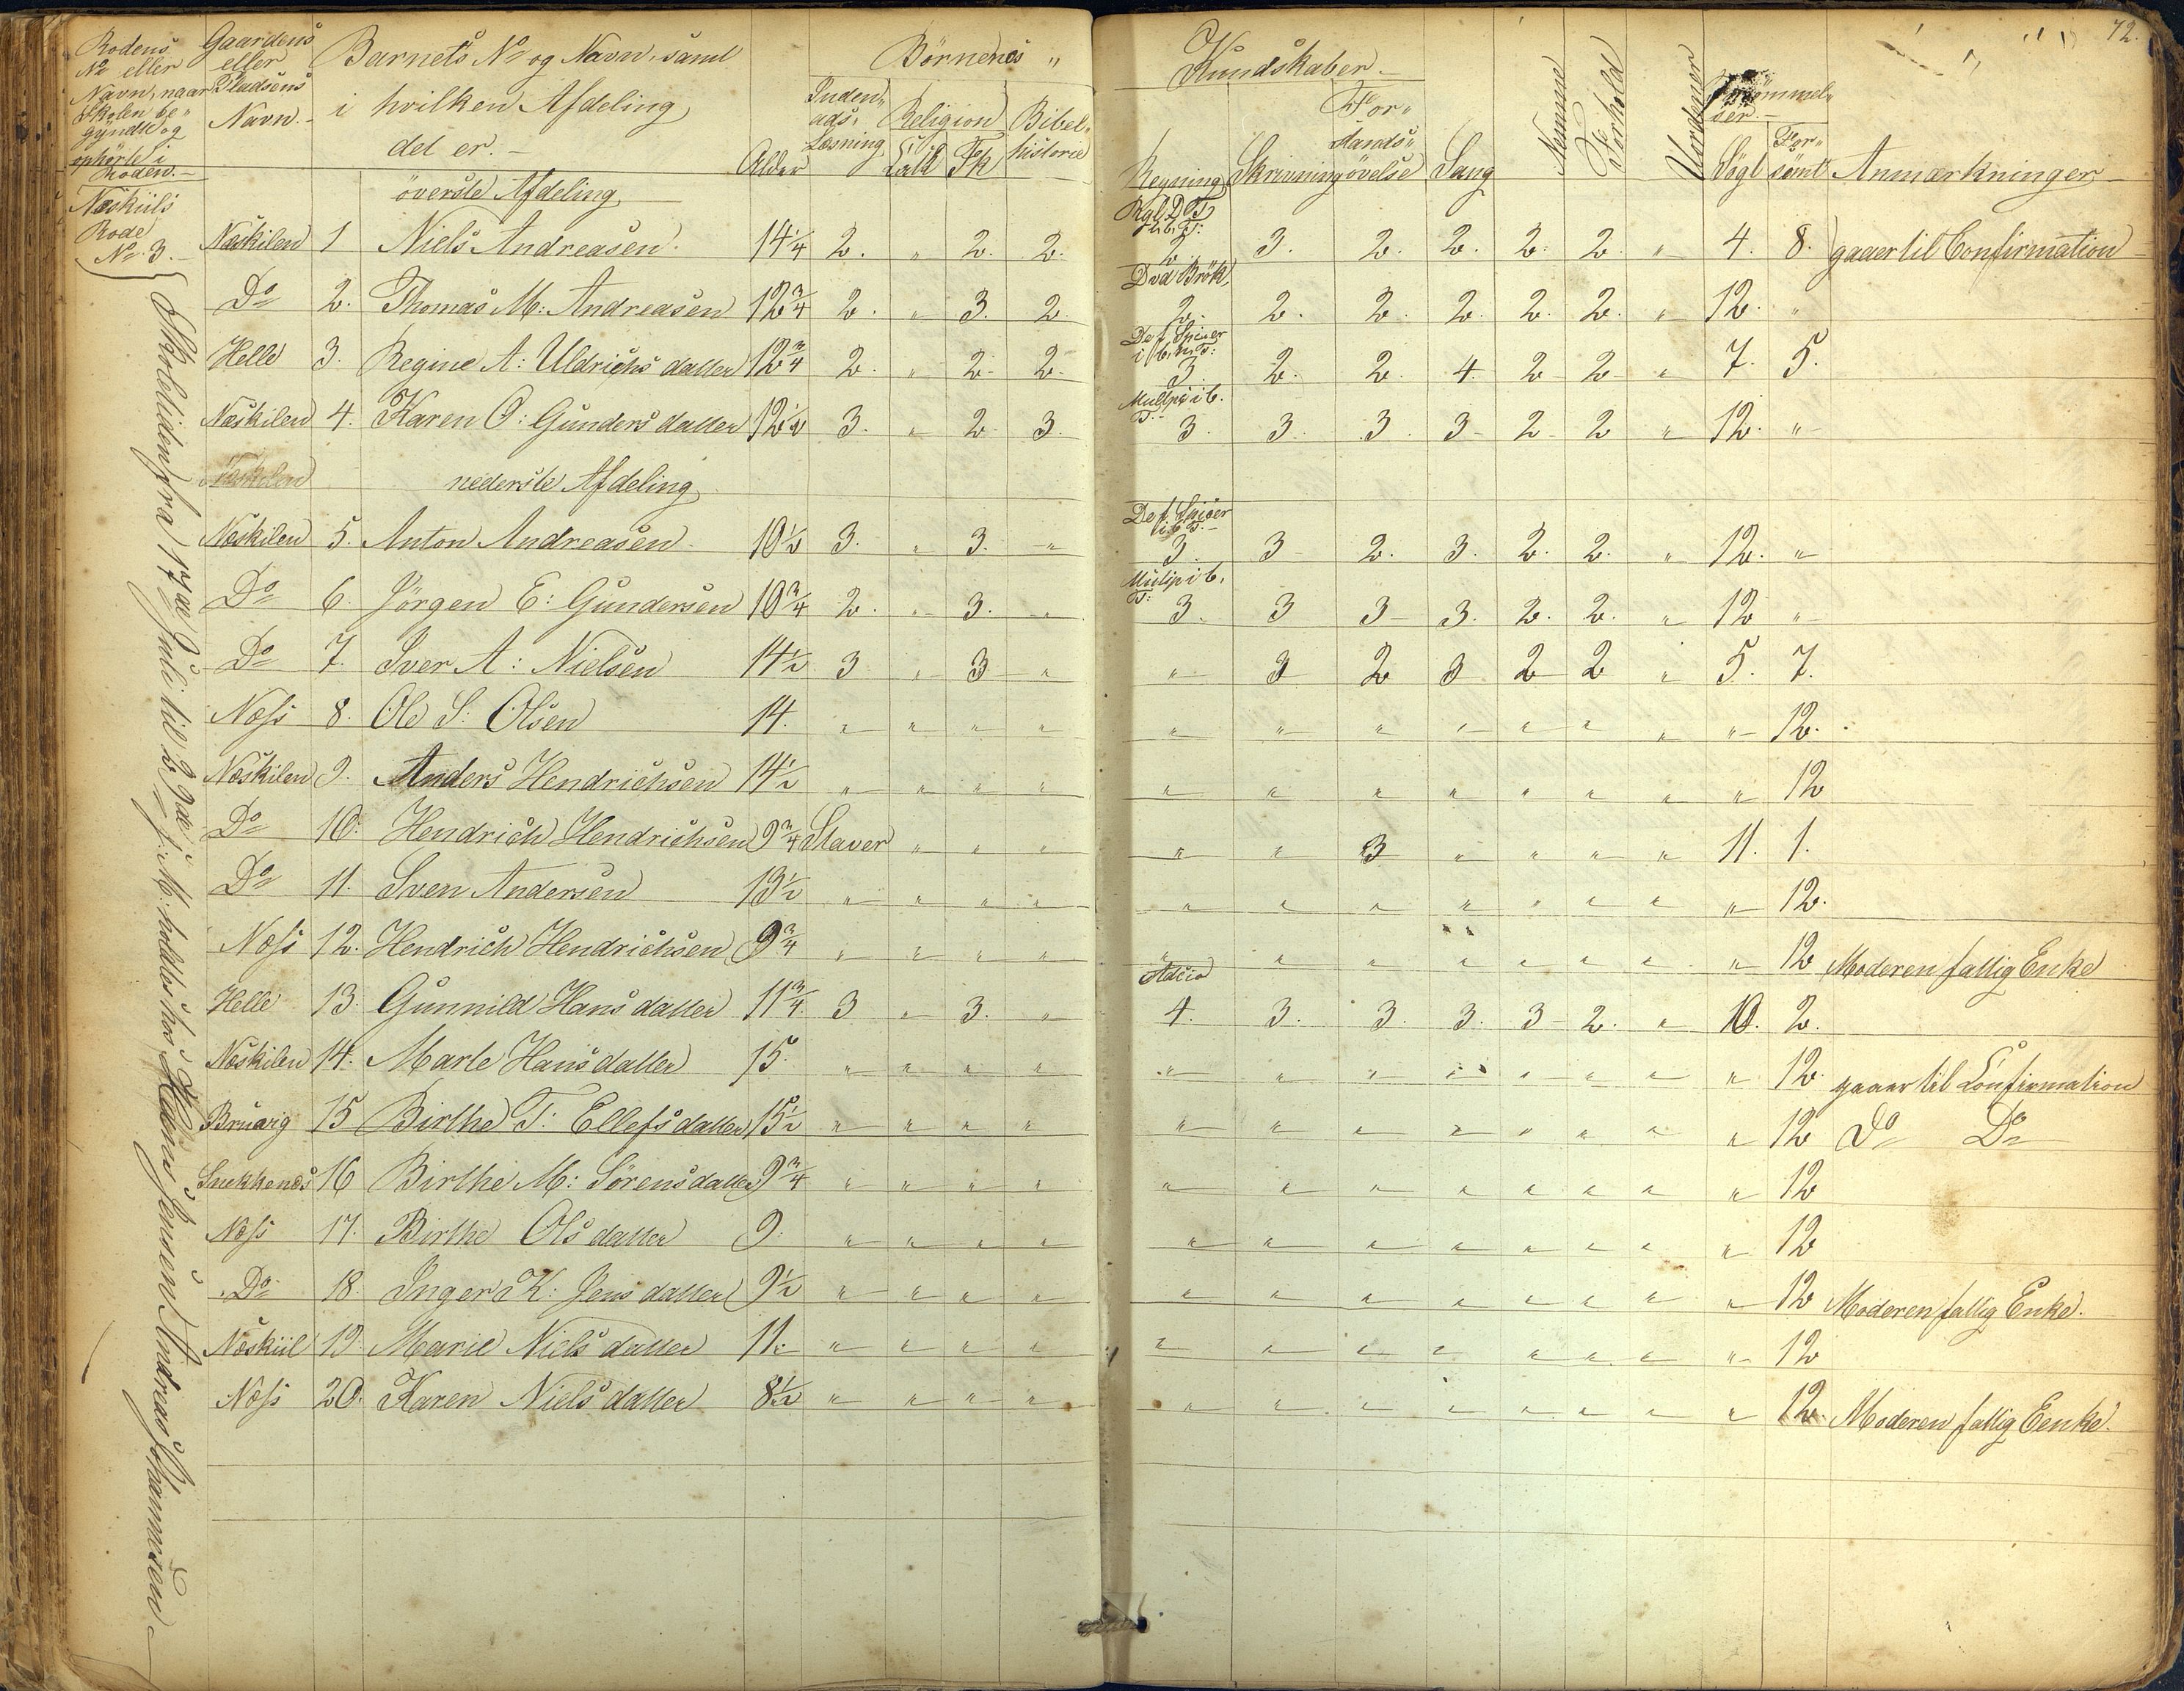 72.
Rodens No eller Navn, naar Skolen begyndte og ophörte i Roden.
Gaardens eller Pladsens Navn.
Barnets No og Navn, samt i hvilken Afdeling det er.
Alder
Börnenes Kundskaber.
Indenads Læsning
Religion
Bibelhistorie
Regning
Skrivning
Forstandsövelse
Sang
Nemme
Forhold
Forsömmelser.
Sögt
Forsömt
Anmærkninger
Næskiils Rode No 3.
Skoletiden fra 17de Juli til 29de s: M: holdtes hos Hans Jensen Andreas
överste Afdeling
Næskilen 1 Niels Andreasen. 14 1/4 2. " 2. 2. 2 3. 2. 2. 2. 2. " 4. 8. gaaer til Confirmation
Do 2. Thomas M: Andreasen 12 3/4 2. " 3. 2. Do d Brök. 2. 2. 2. 2. 2. 2. " 12. "
Helle 3. Regine A: Uldrichs datter 12 3/4 2. " 2. 2. 3 2. 2. 4 2 2 " 7. 5.
Næskilen 4. Karen O: Gunders datter 12 1/2 3. " 2 3. 3. 3 3. 3 2 2 " 12. "
Næskilen nederste Afdeling
Næskilen 5. Anton Andreasen 10 1/2 3. " 3. " 3 3 2. 3. 2. 2. " 12. "
Do 6. Jörgen E: Gundersen 10 3/4 2. " 3. " 3. 3 3 3. 2. 2. " 12 "
Do 7. Iver A: Nielsen 14 1/2 3 " 3 " " 3 2 3 2 2 " 5. 7.
Næss 8. Ole S: Olsen 14. " " " " " " " " " " " " 12.
Næskilen 9. Anders Hendrichsen 14 1/2 " " " " " " " " " " " " 12
Do 10. Hendrich Hendrichsen 9 3/4 Staver " " " " " 3 " " " " 11. 1.
Do 11. Sven Andersen 13 1/2 " " " " " " " " " " " " 12.
Næss 12. Hendrich Hendrichsen 9 3/4 " " " " " " " " " " " " 12 Moderen fattig Enke
Helle 13. Gunnild Hans datter 11 3/4 3 " 3. " 4. 3. 3. 3. 3 2. " 10. 2.
Næskilen 14. Marte Hans datter 15. " " " " " " " " " " " " 12. gaaer til Confirmation
Bruarg 15 Birthe T: Ellefs datter 15 1/2 " " " " " " " " " " " " 12 Do Do
Snekkenes 16 Birthe M: Sörens datter 9 3/4 " " " " " " " " " " " " 12
Næss 17. Birthe Ols datter 9. " " " " " " " " " " " " 12
Do 18. Inger K: Jens datter 9 1/2 " " " " " " " " " " " " 12 Moderen fattig Enke.
Næskiil 19. Marie Niels datter 11. " " " " " " " " " " " " 12
Næss 20. Karen Niels datter 8 1/2 " " " " " " " " " " " " 12. Moderen fattig Eenke.